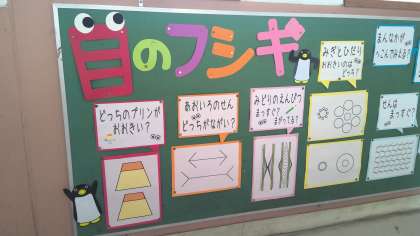 目のフシギ
どっちのプリンが
おおきい?
あおいろのせん
どっちがながい?
みどりのえんぴつ
まっすぐ?
まがってる?
みぎとひだり
おおきいのは
どっち?
まんなかが
へこんでみえる?
せんは
まっすぐ?